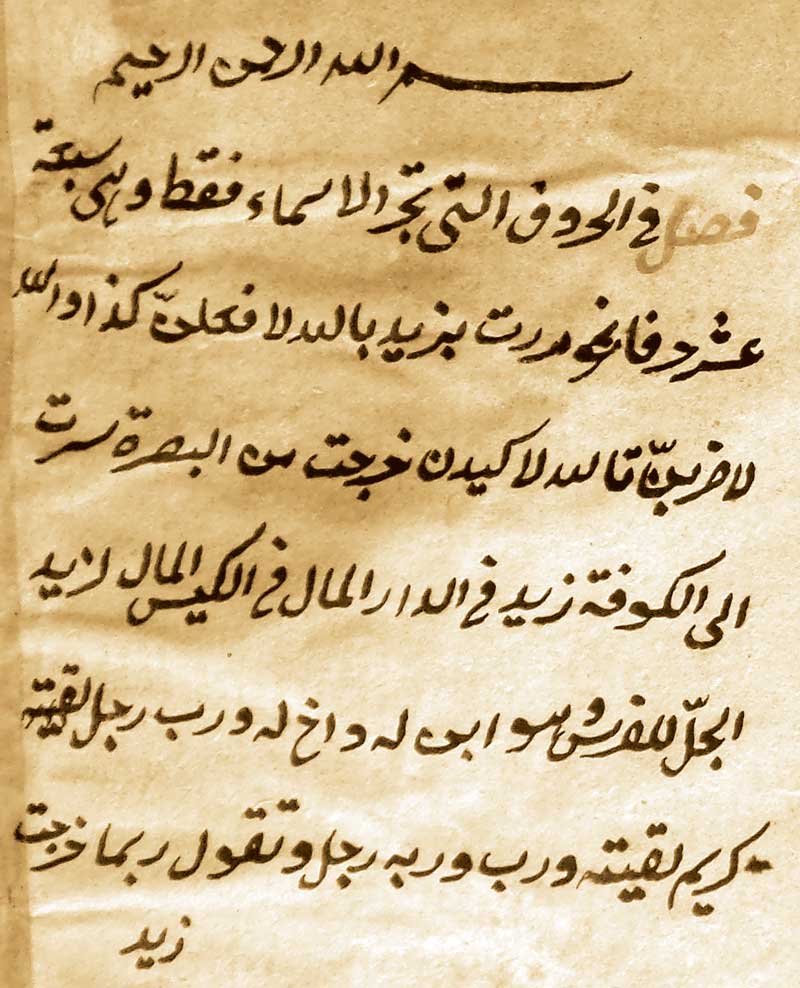 بسم الله الرحمن الرحيم
فصل في الحروف التي تجر الاسماء فقط وهي سبعة
عشر حرفا نحو مررت بزيد بالله لافعلنّ كذا والله
لاضربنّ تالله لاكيدن خرجت من البصرة سرت
الى الكوفة زيد في الدار المال في الكيس المال لزيد
الجلّ للفرس وهو ابن له واخ له ورب رجل لقيته
كريم لقيته ورب وربه رجل وتقول ربما خرجت
زيد